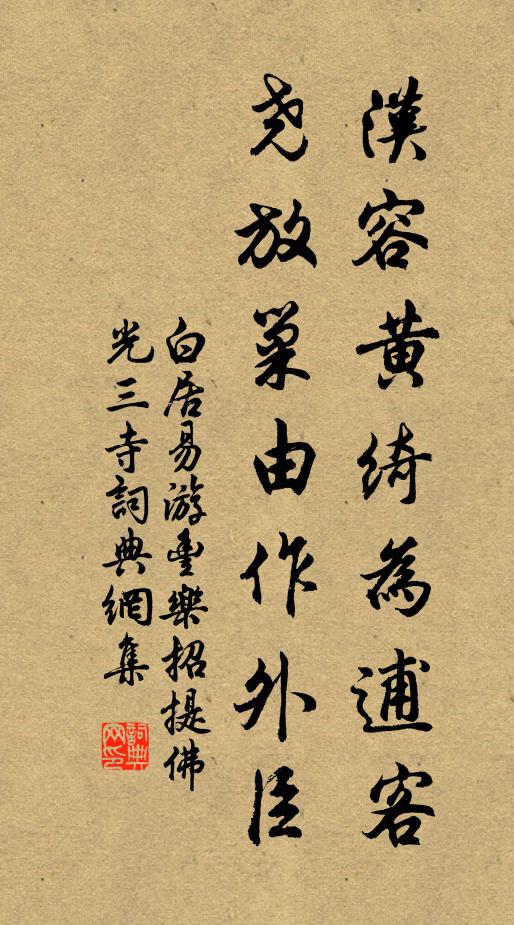 漢容黃綺為逋客
堯放巢由作外臣
白居易游豐樂招提佛
光三寺詞典網集
詞典网印